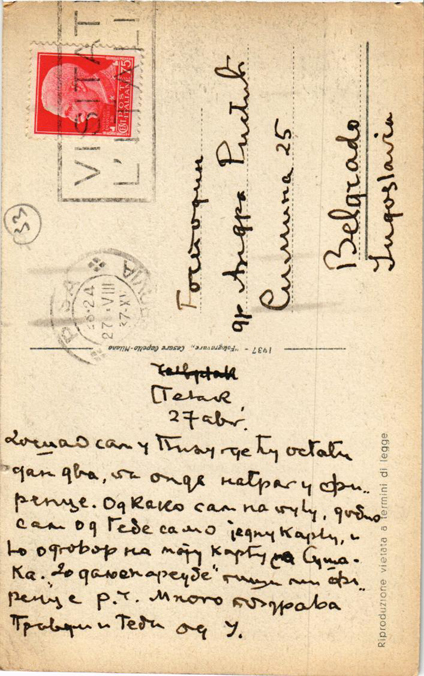 VISITATE
L'ITALIA
POSTE ITALIANE
CENT. 75
33
27 VIII
37-XV
Господин
др Андра
Симина 25
Belgrado
Jugoslavia
1937 - "Fotogravure" Cesare Capello - Milano
Петак
27 авг.
Дошао сам у Пизу где ћу остати
дан два, па онда натраг у Фи-
ренце. Откако сам на путу, добио
сам од Тебе само једну карту, и
то одговор на моју карту са Суша-
ка. "До даље наредбе" пиши ми Фи-
ренце р.г. Много поздрава
и Теби од У.
Riproduzione vietata a termini di legge